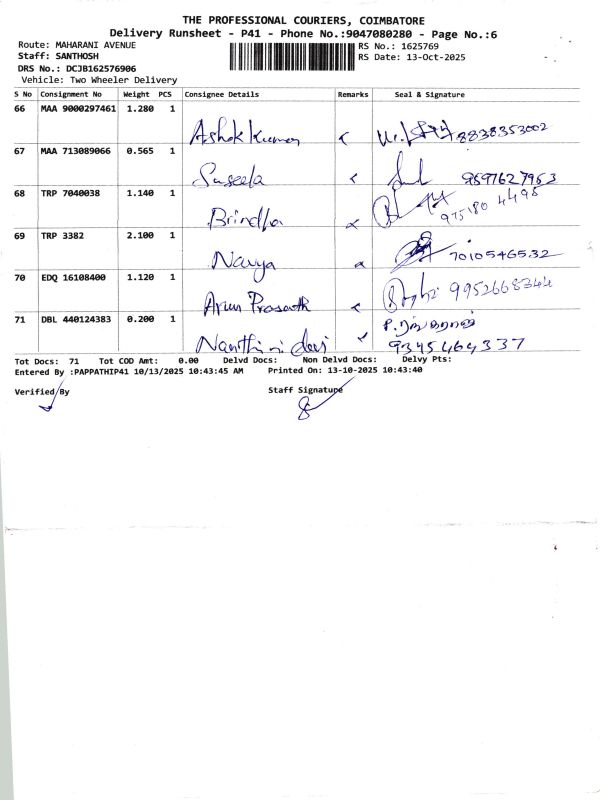 THE PROFESSIONAL COURIERS, COIMBATORE
Delivery Runsheet - P41 - Phone No.:9047080280 - Page No.:6
Route: MAHARANI AVENUE
RS No.: 1625769
Staff: SANTHOSH
RS Date: 13-Oct-2025
DRS No.: DCJB162576906
Vehicle: Two Wheeler Delivery
S No Consignment No Weight PCS Consignee Details Remarks Seal & Signature
66 MAA 9000297461 1.280 1
Ashok Kumar 8838353002
67 MAA 713089066 0.565 1
Suseela 9597627953
68 TRP 7040038 1.140 1
Brindha 975180 4498
69 TRP 3382 2.100 1
Navya 7010546532
70 EDQ 16108400 1.120 1
Arun Prasath 9952668344
71 DBL 440124383 0.200 1
Nanthini devi 9345464337
Tot Docs: 71 Tot COD Amt: 0.00 Delvd Docs: Non Delvd Docs: Delvy Pts:
Entered By :PAPPATHIP41 10/13/2025 10:43:45 AM Printed On: 13-10-2025 10:43:40
Verified By Staff Signature